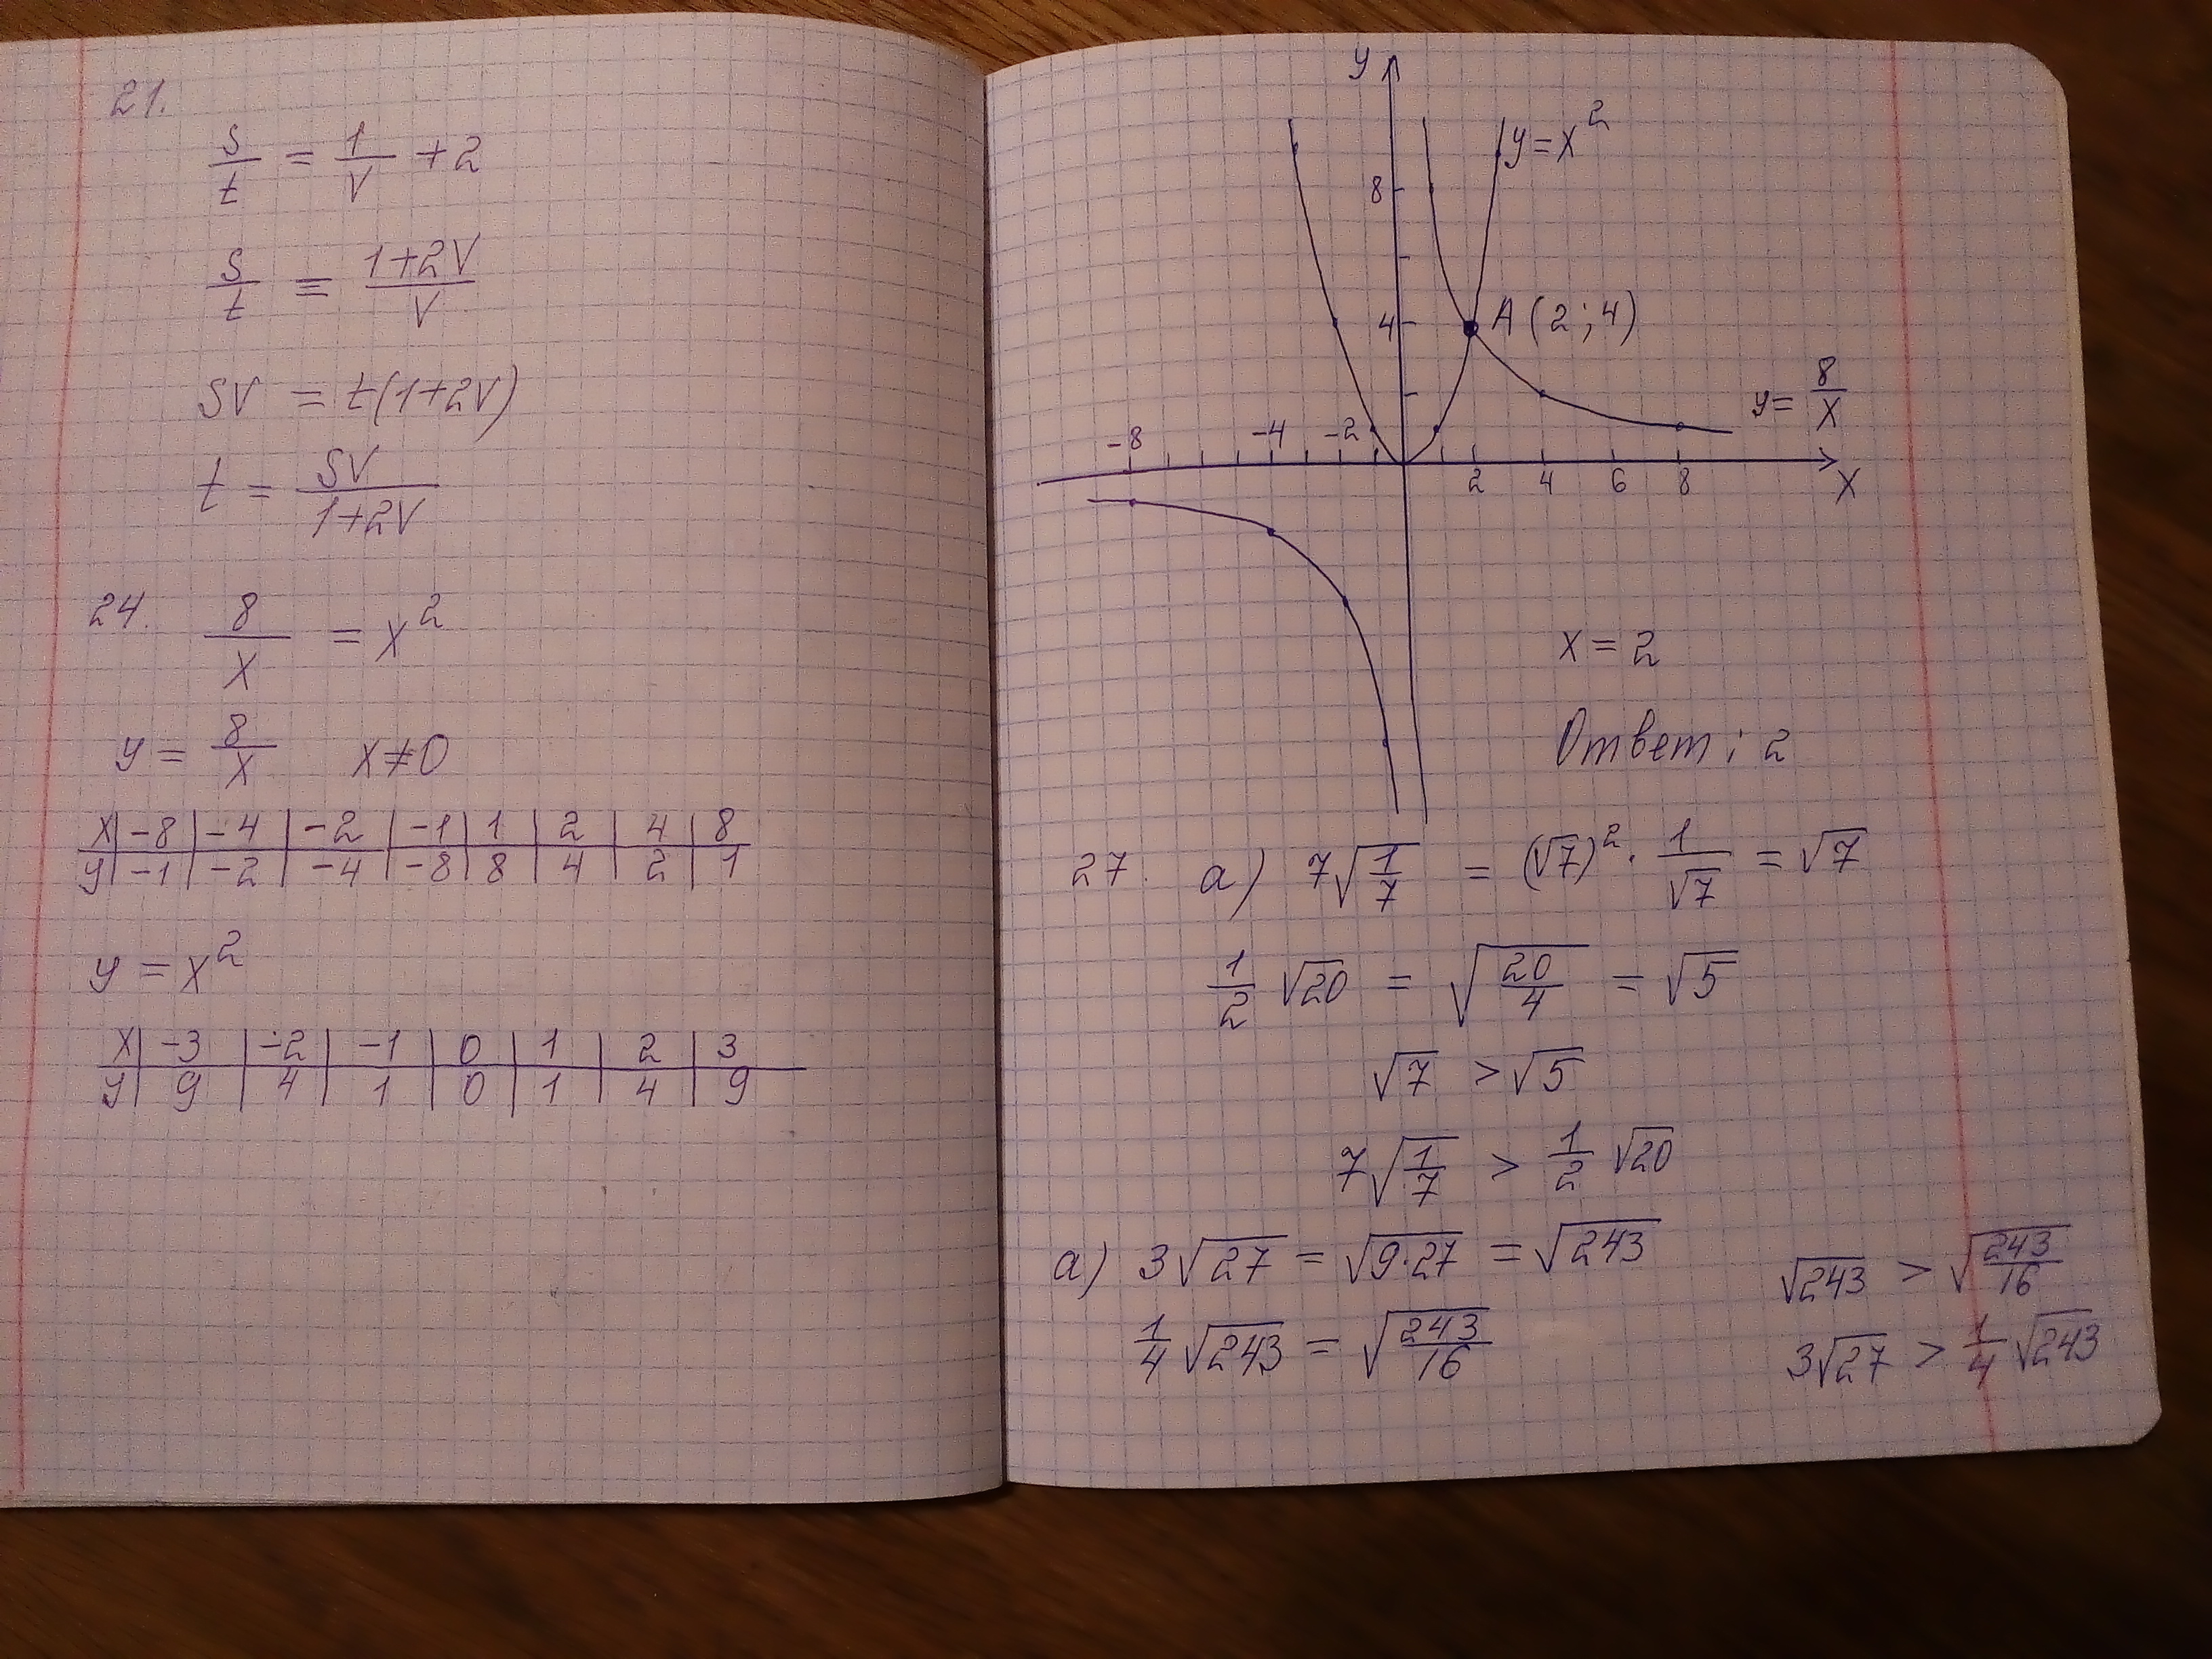 21.
s/t = 1/v + 2
s/t = (1+2v)/v
sv = t(1+2v)
t = sv/(1+2v)
24. 8/x = x²
y = 8/x x≠0
x | -8 | -4 | -2 | -1 | 1 | 2 | 4 | 8
y | -1 | -2 | -4 | -8 | 8 | 4 | 2 | 1
y = x²
x | -3 | -2 | -1 | 0 | 1 | 2 | 3
y | 9 | 4 | 1 | 0 | 1 | 4 | 9
y
y=x²
8
4 A (2;4)
y= 8/x
-8 -4 -2
2 4 6 8 x
x = 2
Ответ: 2
27. а) 7√(1/7) = (√7)² · 1/√7 = √7
1/2 √20 = √(20/4) = √5
√7 > √5
7√(1/7) > 1/2 √20
а) 3√27 = √(9·27) = √243
√243 > √(243/16)
1/4 √243 = √(243/16)
3√27 > 1/4 √243